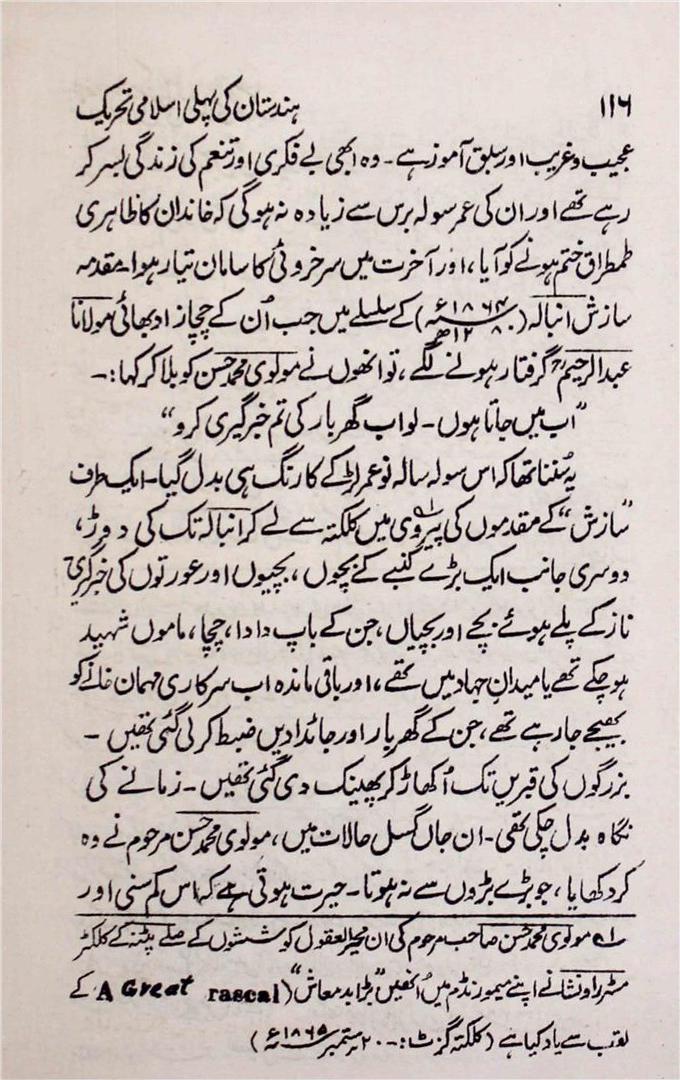 ۱۱۶ ہندستان کی پہلی اسلامی تحریک
عجیب و غریب اور سبق آموز ہے۔ وہ ابھی بے فکری اور تنعم کی زندگی بسر کر
رہے تھے اور ان کی عمر سولہ برس سے زیادہ نہ ہوگی کہ خاندان کا ظاہری
طمطراق ختم ہونے کو آیا، اور آخرت میں سرخروئی کا سامان تیار ہوا۔ مقدمہ
سازش انبالہ (۱۸۶۴ء ۱۲۸۰ھ) کے سلسلے میں جب اُن کے چچازاد بھائی مولانا
عبدالرحیمؒ گرفتار ہونے لگے، تو انھوں نے مولوی محمد حسن کو بلا کر کہا:۔
”اب میں جاتا ہوں۔ لو اب گھر بار کی تم خبر گیری کرو“
یہ سُننا تھا کہ اس سولہ سالہ نو عمر لڑکے کا رنگ ہی بدل گیا۔ ایک طرف
”سازش“ کے مقدموں کی پیروی میں کلکتہ سے لے کر انبالہ تک کی دوڑ،
دوسری جانب ایک بڑے کنبے کے بچوں، بچیوں اور عورتوں کی خبرگیری
ناز کے پلے ہوئے بچے اور بچیاں، جن کے باپ دادا، چچا، ماموں شہید
ہو چکے تھے یا میدانِ جہاد میں تھے، اور باقی ماندہ اب سرکاری مہمان خانے کو
بھیجے جا رہے تھے، جن کے گھر بار اور جائدادیں ضبط کر لی گئی تھیں۔
بزرگوں کی قبریں تک اُکھاڑ کر پھینک دی گئی تھیں۔ زمانے کی
نگاہ بدل چکی تھی۔ ان جاں گسل حالات میں، مولوی محمد حسن مرحوم نے وہ
کر دکھایا، جو بڑے بڑوں سے نہ ہوتا۔ حیرت ہوتی ہے کہ اس کم سنی اور
۱؎ مولوی محمد حسن صاحب مرحوم کی ان محیر العقول کوششوں کے صلے پٹنہ کے کلکٹر
مسٹر راونشا نے اپنے میمورنڈم میں اُنھیں ”بڑا بدمعاش“ (A Great rascal) کے
لقب سے یاد کیا ہے (کلکتہ گزٹ:۔ ۲۰ ستمبر ۱۸۶۵ء)